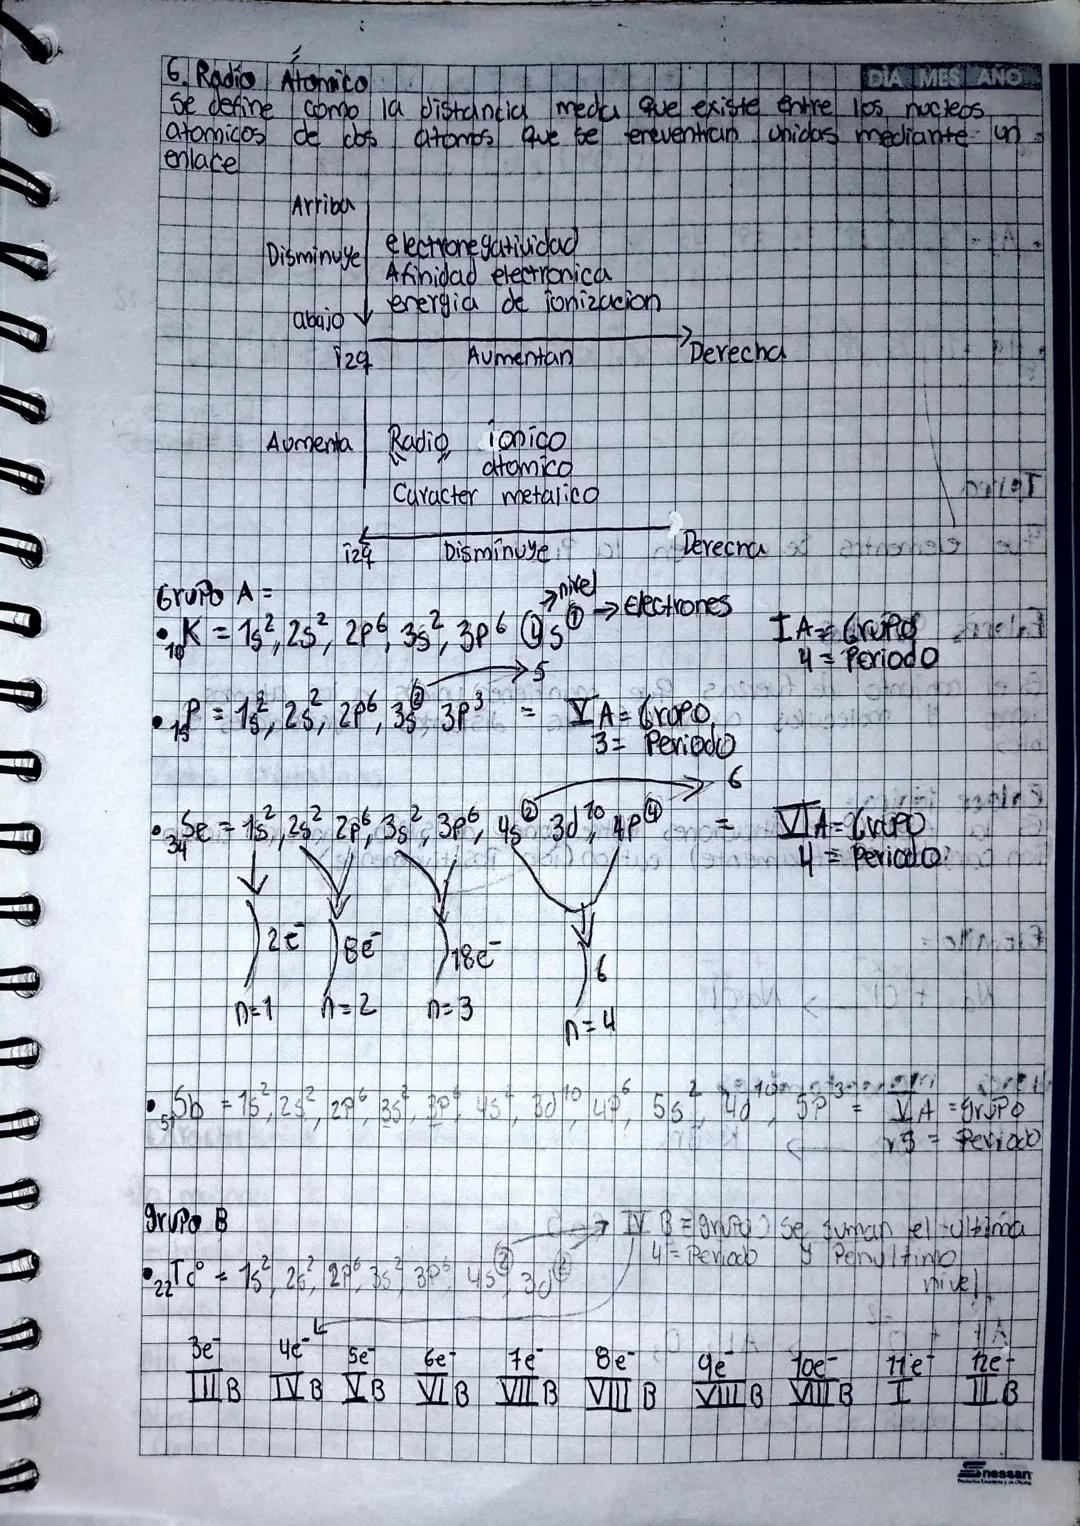 DIA MES AÑO
6. Radio Atomico
Se define como la distancia media que existe entre los nucleos
atomicos de dos atomos que se encuentran unidos mediante un
enlace
Arriba
Disminuye electronegatividad
Afinidad electronica
energia de ionizacion
abajo
izq Aumentan Derecha
Aumenta Radio ionico
atomico
Caracter metalico
izq Disminuye Derecha
Grupo A =
nivel
• ₁₉K = 1s², 2s², 2p⁶, 3s², 3p⁶ ④s① → Electrones
I A = Grupo
4 = Periodo
5
• ₁₅P = 1s², 2s², 2p⁶, 3s², 3p³ = V A = Grupo
3 = Periodo
6
• ₃₄Se = 1s², 2s², 2p⁶, 3s², 3p⁶, 4s², 3d¹⁰, 4p④ = VI A = Grupo
4 = Periodo
2e⁻ 8e⁻ 18e⁻ 6
n=1 n=2 n=3 n=4
• ₅₁Sb = 1s², 2s², 2p⁶, 3s², 3p⁶, 4s², 3d¹⁰, 4p⁶, 5s², 4d¹⁰, 5p³ = V A = grupo
5 = Periodo
grupo B
IV B = grupo se suman el ultimo
4 = Periodo y Penultimo
nivel
• ₂₂ = 1s², 2s², 2p⁶, 3s², 3p⁶, 4s②, 3d②
3e⁻ 4e⁻ 5e⁻ 6e⁻ 7e⁻ 8e⁻ 9e⁻ 10e⁻ 11e⁻ 12e⁻
III B IV B V B VI B VII B VIII B VIII B VIII B I II B
nessan